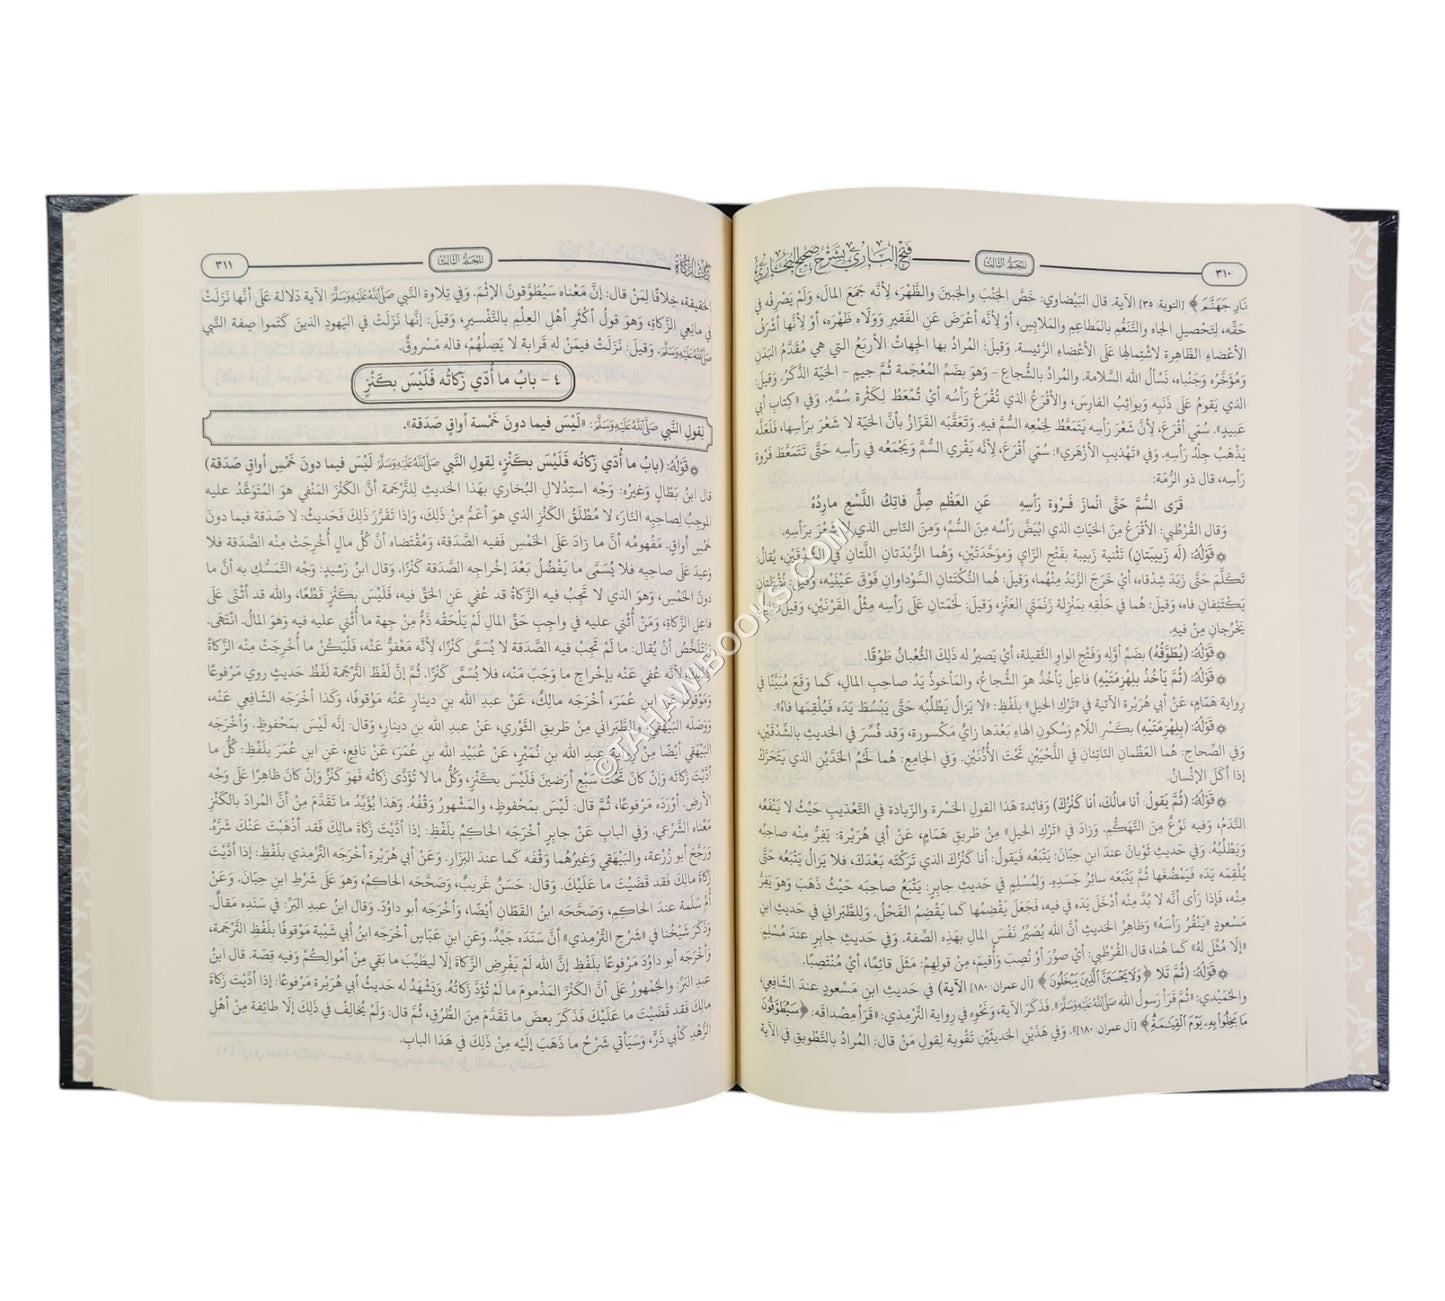 ٣١٠
المجلد الثالث
فتح الباري بشرح صحيح البخاري
نَارِ جَهَنَّمَ ﴾ [التوبة: ٣٥] الآية. قال البَيْضاوي: خَصَّ الجَنْبَ والجَبينَ والظَّهْرَ، لِأَنَّه جَمَعَ المالَ، وَلَمْ يَصْرِفْه في
حَقِّه، لِتَحْصيلِ الجاه والتَّنَعُّم بالمَطاعِم والمَلابِس، أَوْ لِأَنَّه أَعْرَضَ عَن الفَقير وَوَلَّاه ظَهْرَه، أَوْ لِأنَّها أَشْرَفُ
الأعْضاءِ الظّاهِرة لاشْتِمالِها عَلَى الأعْضاءِ الرَّئيسة. وَقيلَ: المُرادُ بها الجِهاتُ الأرْبَعُ التي هي مُقَدَّمُ البَدَنِ
وَمُؤَخَّرُه وَجَنْباه، نَسْأَلُ الله السَّلامة. والمُرادُ بالشُّجاع - وَهوَ بضَمِّ المُعْجَمة ثُمَّ جيم - الحَيّة الذَّكَرُ، وَقيلَ:
الذي يَقومُ عَلَى ذَنَبِه وَيواثِبُ الفارِسَ، والأقْرَعُ الذي تُقْرَعُ رَأْسُه أيْ تُمْعَطُ لِكَثْرة سُمِّه. وَفي «كِتابِ أبي
عُبيدٍ». سُمّي أقْرَعَ، لِأنَّ شَعْرَ رَأْسِه يَتَمَعَّطُ لِجَمْعِه السُّمَّ فيه. وَتَعَقَّبَه القَزّازُ بأنَّ الحَيّة لا شَعْرَ برَأْسِها، فَلَعَلَّه
يَذْهَبُ جِلْدُ رَأْسِه. وَفي «تَهْذيبِ الأزْهَري»: سُمّي أقْرَعَ، لِأَنَّه يَقْري السُّمَّ وَيَجْمَعُه في رَأْسِه حَتَّى تَتَمَعَّطَ فَرْوة
رَأْسِه، قال ذو الرُّمّة:
قَرَى السُّمَّ حَتَّى انْمازَ فَرْوة رَأْسِه عَنِ العَظْمِ صِلٌّ فاتِكُ اللَّسْعِ مارِدُه
وَقال القُرْطُبي: الأقْرَعُ مِنَ الحَيّاتِ الذي ابْيَضَّ رَأْسُه مِنَ السُّمِّ، وَمِنَ النّاسِ الذي لا شَعْرَ برَأْسِه.
قَوْلُهُ: (لَه زَبيبَتانِ) تَثْنية زَبيبة بفَتْحِ الزّاي وَمُوَحَّدَتَيْنِ، وَهُما الزُّبْدَتانِ اللَّتانِ في الشِّدْقَيْنِ، يُقالُ:
تَكَلَّمَ حَتَّى زَبَدَ شِدْقاه، أيْ خَرَجَ الزَّبَدُ مِنْهُما، وَقيلَ: هُما النُّكْتَتانِ السَّوْداوانِ فَوْقَ عَيْنَيْه، وَقيلَ: نُقْطَتانِ
يَكْتَنِفانِ فاه، وَقيلَ: هُما في حَلْقِه بمَنْزِلة زَنَمَتي العَنْزِ، وَقيلَ: لَحْمَتانِ عَلَى رَأْسِه مِثْلُ القَرْنَيْنِ، وَقيلَ: نابانِ
يَخْرُجانِ مِنْ فيه.
قَوْلُهُ: (يُطَوَّقُه) بضَمِّ أوَّلِه وَفَتْحِ الواوِ الثَّقيلة، أيْ يَصيرُ له ذَلِكَ الثُّعْبانُ طَوْقًا.
قَوْلُهُ: (ثُمَّ يَأْخُذُ بلِهْزِمَتَيْهِ) فاعِلُ يَأْخُذُ هوَ الشُّجاعُ، والمَأْخوذُ يَدُ صاحِبِ المالِ، كَما وَقَعَ مُبَيَّنًا في
رِواية هَمّامٍ، عَنْ أبي هُرَيْرة الآتية في «تَرْكِ الحيل» بلَفْظِ: «لا يَزالُ يَطْلُبُه حَتَّى يَبْسُطَ يَدَه فَيُلْقِمَها فاهُ».
قَوْلُهُ: (بلِهْزِمَتَيْهِ) بكَسْرِ اللّامِ وَسُكونِ الهاءِ بَعْدَها زايٌ مَكْسورة، وَقد فُسِّرَ في الحَديثِ بالشِّدْقَيْنِ،
وَفي الصِّحاحِ: هُما العَظْمانِ النّاتِئانِ في اللَّحْيَيْنِ تَحْتَ الأُذُنَيْنِ. وَفي الجامِعِ: هُما لَحْمُ الخَدَّيْنِ الذي يَتَحَرَّكُ
إذا أكَلَ الإنْسانُ.
قَوْلُهُ: (ثُمَّ يَقولُ: أنا مالُكَ، أنا كَنْزُكَ) وَفائِدة هَذا القولِ الحَسْرة والزّيادة في التَّعْذيبِ حَيْثُ لا يَنْفَعُه
النَّدَمُ، وَفيه نَوْعٌ مِنَ التَّهَكُّمِ. وَزادَ في «تَرْكِ الحيلِ» مِنْ طَريقِ هَمّامٍ، عَنْ أبي هُرَيْرة: يَفِرُّ مِنْه صاحِبُه
وَيَطْلُبُه. وَفي حَديثِ ثَوْبانَ عندَ ابنِ حِبّانَ: يَتْبَعُه فَيَقولُ: أنا كَنْزُكَ الذي تَرَكْتَه بَعْدَكَ، فلا يَزالُ يَتْبَعُه حَتَّى
يُلْقِمَه يَدَه فَيَمْضُغُها ثُمَّ يَتْبَعُه سائِرُ جَسَدِه. وَلِمُسْلِمٍ في حَديثِ جابِرٍ: يَتْبَعُ صاحِبَه حَيْثُ ذَهَبَ وَهوَ يَفِرُّ
مِنْه، فَإذا رَأى أنَّه لا بُدَّ مِنْه أدْخَلَ يَدَه في فيه، فَجَعَلَ يَقْضِمُها كَما يَقْضِمُ الفَحْلُ. وَلِلطَّبَراني في حَديثِ ابنِ
مَسْعودٍ «يَنْقُرُ رَأْسَهُ» وَظاهِرُ الحَديثِ أنَّ الله يُصَيِّرُ نَفْسَ المالِ بهَذِه الصِّفة. وَفي حَديثِ جابِرٍ عندَ مُسْلِمٍ
«إلّا مُثِّلَ لَهُ» كَما هُنا، قال القُرْطُبي: أيْ صوِّرَ أوْ نُصِبَ وَأُقيمَ، مِنْ قولِهِمْ: مَثَلَ قائِمًا، أيْ مُنْتَصِبًا.
قَوْلُهُ: (ثُمَّ تَلا ﴿ وَلَا يَحْسَبَنَّ الَّذِينَ يَبْخَلُونَ ﴾ [آل عمران: ١٨٠] الآية) في حَديثِ ابنِ مَسْعودٍ عندَ الشّافِعي،
والحُمَيْدي: «ثُمَّ قَرَأ رَسولُ الله ﷺ». فَذكَرَ الآية، وَنَحْوه في رِواية التِّرْمِذي: «قَرَأ مِصْداقَه: ﴿ سَيُطَوَّقُونَ
مَا بَخِلُوا بِهِ يَوْمَ الْقِيَامَةِ ﴾ [آل عمران: ١٨٠]». وَفي هَذَيْنِ الحَديثَيْنِ تَقْوية لِقولِ مَنْ قال: المُرادُ بالتَّطْويقِ في الآية
كتاب الزكاة
المجلد الثالث
٣١١
الحَقيقة، خِلافًا لِمَنْ قال: إنَّ مَعْناه سَيُطَوَّقونَ الإثْمَ. وَفي تِلاوة النَّبي ﷺ الآية دَلالة عَلَى أنَّها نَزَلَتْ
في مانِعي الزَّكاةِ، وَهوَ قولُ أكْثَرِ أهْلِ العِلْمِ بالتَّفْسيرِ، وَقيلَ: إنَّها نَزَلَتْ في اليَهودِ الذينَ كَتَموا صِفة النَّبي
ﷺ، وَقيلَ: نَزَلَتْ فيمَنْ له قَرابة لا يَصِلُهُمْ، قاله مَسْروقٌ.
٤ - بابُ ما أُدّي زَكاتُه فَلَيْسَ بكَنْزٍ
لِقولِ النَّبي ﷺ: «لَيْسَ فيما دونَ خَمْسة أواقٍ صَدَقة».
قَوْلُهُ: (بابُ ما أُدّي زَكاتُه فَلَيْسَ بكَنْزٍ، لِقولِ النَّبي ﷺ لَيْسَ فيما دونَ خَمْسِ أواقٍ صَدَقة)
قال ابنُ بَطّالٍ وَغيرُه: وَجْه اسْتِدْلالِ البُخاري بهَذا الحَديثِ لِلتَّرْجَمة أنَّ الكَنْزَ المَنْفي هوَ المُتَوَعَّدُ عليه
الموجِبُ لِصاحِبِه النّارَ، لا مُطْلَقُ الكَنْزِ الذي هوَ أعَمُّ مِنْ ذَلِكَ، وَإذا تَقَرَّرَ ذَلِكَ فَحَديثُ: لا صَدَقة فيما دونَ
خَمْسِ أواقٍ. مَفْهومُه أنَّ ما زادَ عَلَى الخَمْسِ فَفيه الصَّدَقة، وَمُقْتَضاه أنَّ كُلَّ مالٍ أُخْرِجَتْ مِنْه الصَّدَقة فلا
وَعيدَ عَلَى صاحِبِه فلا يُسَمَّى ما يَفْضُلُ بَعْدَ إخْراجِه الصَّدَقة كَنْزًا. وَقال ابنُ رَشيدٍ: وَجْه التَّمَسُّكِ به أنَّ ما
دونَ الخَمْسِ، وَهوَ الذي لا تَجِبُ فيه الزَّكاةُ قد عُفي عَنِ الحَقِّ فيه، فَلَيْسَ بكَنْزٍ قَطْعًا، والله قد أثْنَى عَلَى
فاعِلِ الزَّكاةِ، وَمَنْ أُثْني عليه في واجِبِ حَقِّ المالِ لَمْ يَلْحَقْه ذَمٌّ مِنْ جِهة ما أُثْني عليه فيه وَهوَ المالُ. انْتَهَى.
وَيَتَلَخَّصُ أنْ يُقالَ: ما لَمْ تَجِبْ فيه الصَّدَقة لا يُسَمَّى كَنْزًا، لِأنَّه مَعْفوٌّ عَنْه، فَلْيَكُنْ ما أُخْرِجَتْ مِنْه الزَّكاةُ
كَذَلِكَ، لِأنَّه عُفي عَنْه بإخْراجِ ما وَجَبَ مِنْه، فَلا يُسَمَّى كَنْزًا. ثُمَّ إنَّ لَفْظَ التَّرْجَمة لَفْظُ حَديثٍ روي مَرْفوعًا
وَمَوْقوفًا عَنِ ابنِ عُمَرَ، أخْرَجَه مالِكٌ، عَنْ عبدِ الله بنِ دينارٍ عَنْه مَوْقوفًا، وَكَذا أخْرَجَه الشّافِعي عَنْه،
وَوَصَلَه البَيْهَقي والطَّبَراني مِنْ طَريقِ الثَّوْري، عَنْ عبدِ الله بنِ دينارٍ، وَقال: إنَّه لَيْسَ بمَحْفوظٍ. وَأخْرَجَه
البَيْهَقي أيْضًا مِنْ رِواية عبدِ الله بنِ نُمَيْرٍ، عَنْ عُبَيْدِ الله بنِ عُمَرَ، عَنْ نافِعٍ، عَنِ ابنِ عُمَرَ بلَفْظِ: كُلُّ ما
أدَّيْتَ زَكاتَه وَإنْ كانَ تَحْتَ سَبْعِ أرَضينَ فَلَيْسَ بكَنْزٍ، وَكُلُّ ما لا تُؤَدَّى زَكاتُه فَهوَ كَنْزٌ وَإنْ كانَ ظاهِرًا عَلَى وَجْه
الأرْضِ. أوْرَدَه مَرْفوعًا، ثُمَّ قال: لَيْسَ بمَحْفوظٍ، والمَشْهورُ وَقْفُهُ. وَهَذا يُؤَيِّدُ ما تَقَدَّمَ مِنْ أنَّ المُرادَ بالكَنْزِ
مَعْناه الشَّرْعي. وَفي البابِ عَنْ جابِرٍ أخْرَجَه الحاكِمُ بلَفْظِ: إذا أدَّيْتَ زَكاةَ مالِكَ فَقد أذْهَبْتَ عَنْكَ شَرَّهُ.
وَرَجَّحَ أبو زُرْعة، والبَيْهَقي وَغيرُهُما وَقْفَه كَما عندَ البَزّارِ. وَعَنْ أبي هُرَيْرة أخْرَجَه التِّرْمِذي بلَفْظِ: إذا أدَّيْتَ
زَكاةَ مالِكَ فَقد قَضَيْتَ ما عَلَيْكَ. وَقال: حَسَنٌ غَريبٌ، وَصَحَّحَه الحاكِمُ، وَهوَ عَلَى شَرْطِ ابنِ حِبّانَ. وَعَنْ
أُمِّ سَلَمة عندَ الحاكِمِ، وَصَحَّحَه ابنُ القَطّانِ أيْضًا، وَأخْرَجَه أبو داوُدَ. وَقال ابنُ عبدِ البَرِّ: في سَنَدِه مَقالٌ.
وَذَكَرَ شَيْخُنا في «شَرْحِ التِّرْمِذي» أنَّ سَنَدَه جَيِّدٌ. وَعَنِ ابنِ عَبّاسٍ أخْرَجَه ابنُ أبي شَيْبة مَوْقوفًا بلَفْظِ التَّرْجَمة،
وَأخْرَجَه أبو داوُدَ مَرْفوعًا بلَفْظِ إنَّ الله لَمْ يَفْرِضِ الزَّكاةَ إلّا لِيطَيِّبَ ما بَقي مِنْ أمْوالِكُمْ وَفيه قِصّة. قال ابنُ
عبدِ البَرِّ: والجُمْهورُ عَلَى أنَّ الكَنْزَ المَذْمومَ ما لَمْ تُؤَدَّ زَكاتُهُ. وَيَشْهَدُ له حَديثُ أبي هُرَيْرة مَرْفوعًا: إذا أدَّيْتَ زَكاةَ
مالِكَ فَقد قَضَيْتَ ما عَلَيْكَ فَذَكَرَ بعضَ ما تَقَدَّمَ مِنَ الطُّرُقِ، ثُمَّ قال: وَلَمْ يُخالِفْ في ذَلِكَ إلّا طائِفة مِنْ أهْلِ
الزُّهْدِ كَأبي ذَرٍّ، وَسَيَأْتي شَرْحُ ما ذَهَبَ إلَيْه مِنْ ذَلِكَ في هَذا البابِ.
©TAHAWIBOOKS.COM